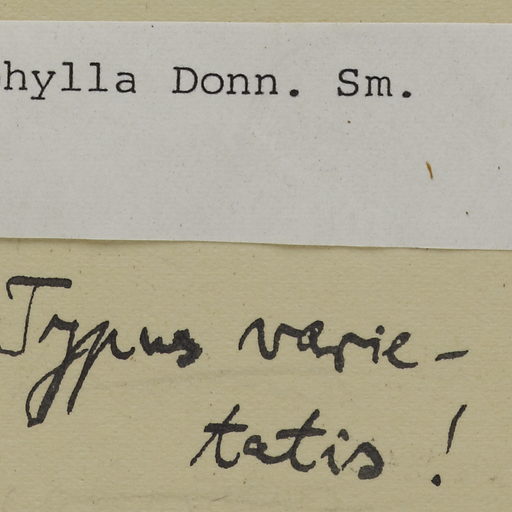 hylla Donn. Sm.
Typus varie-
tatis!